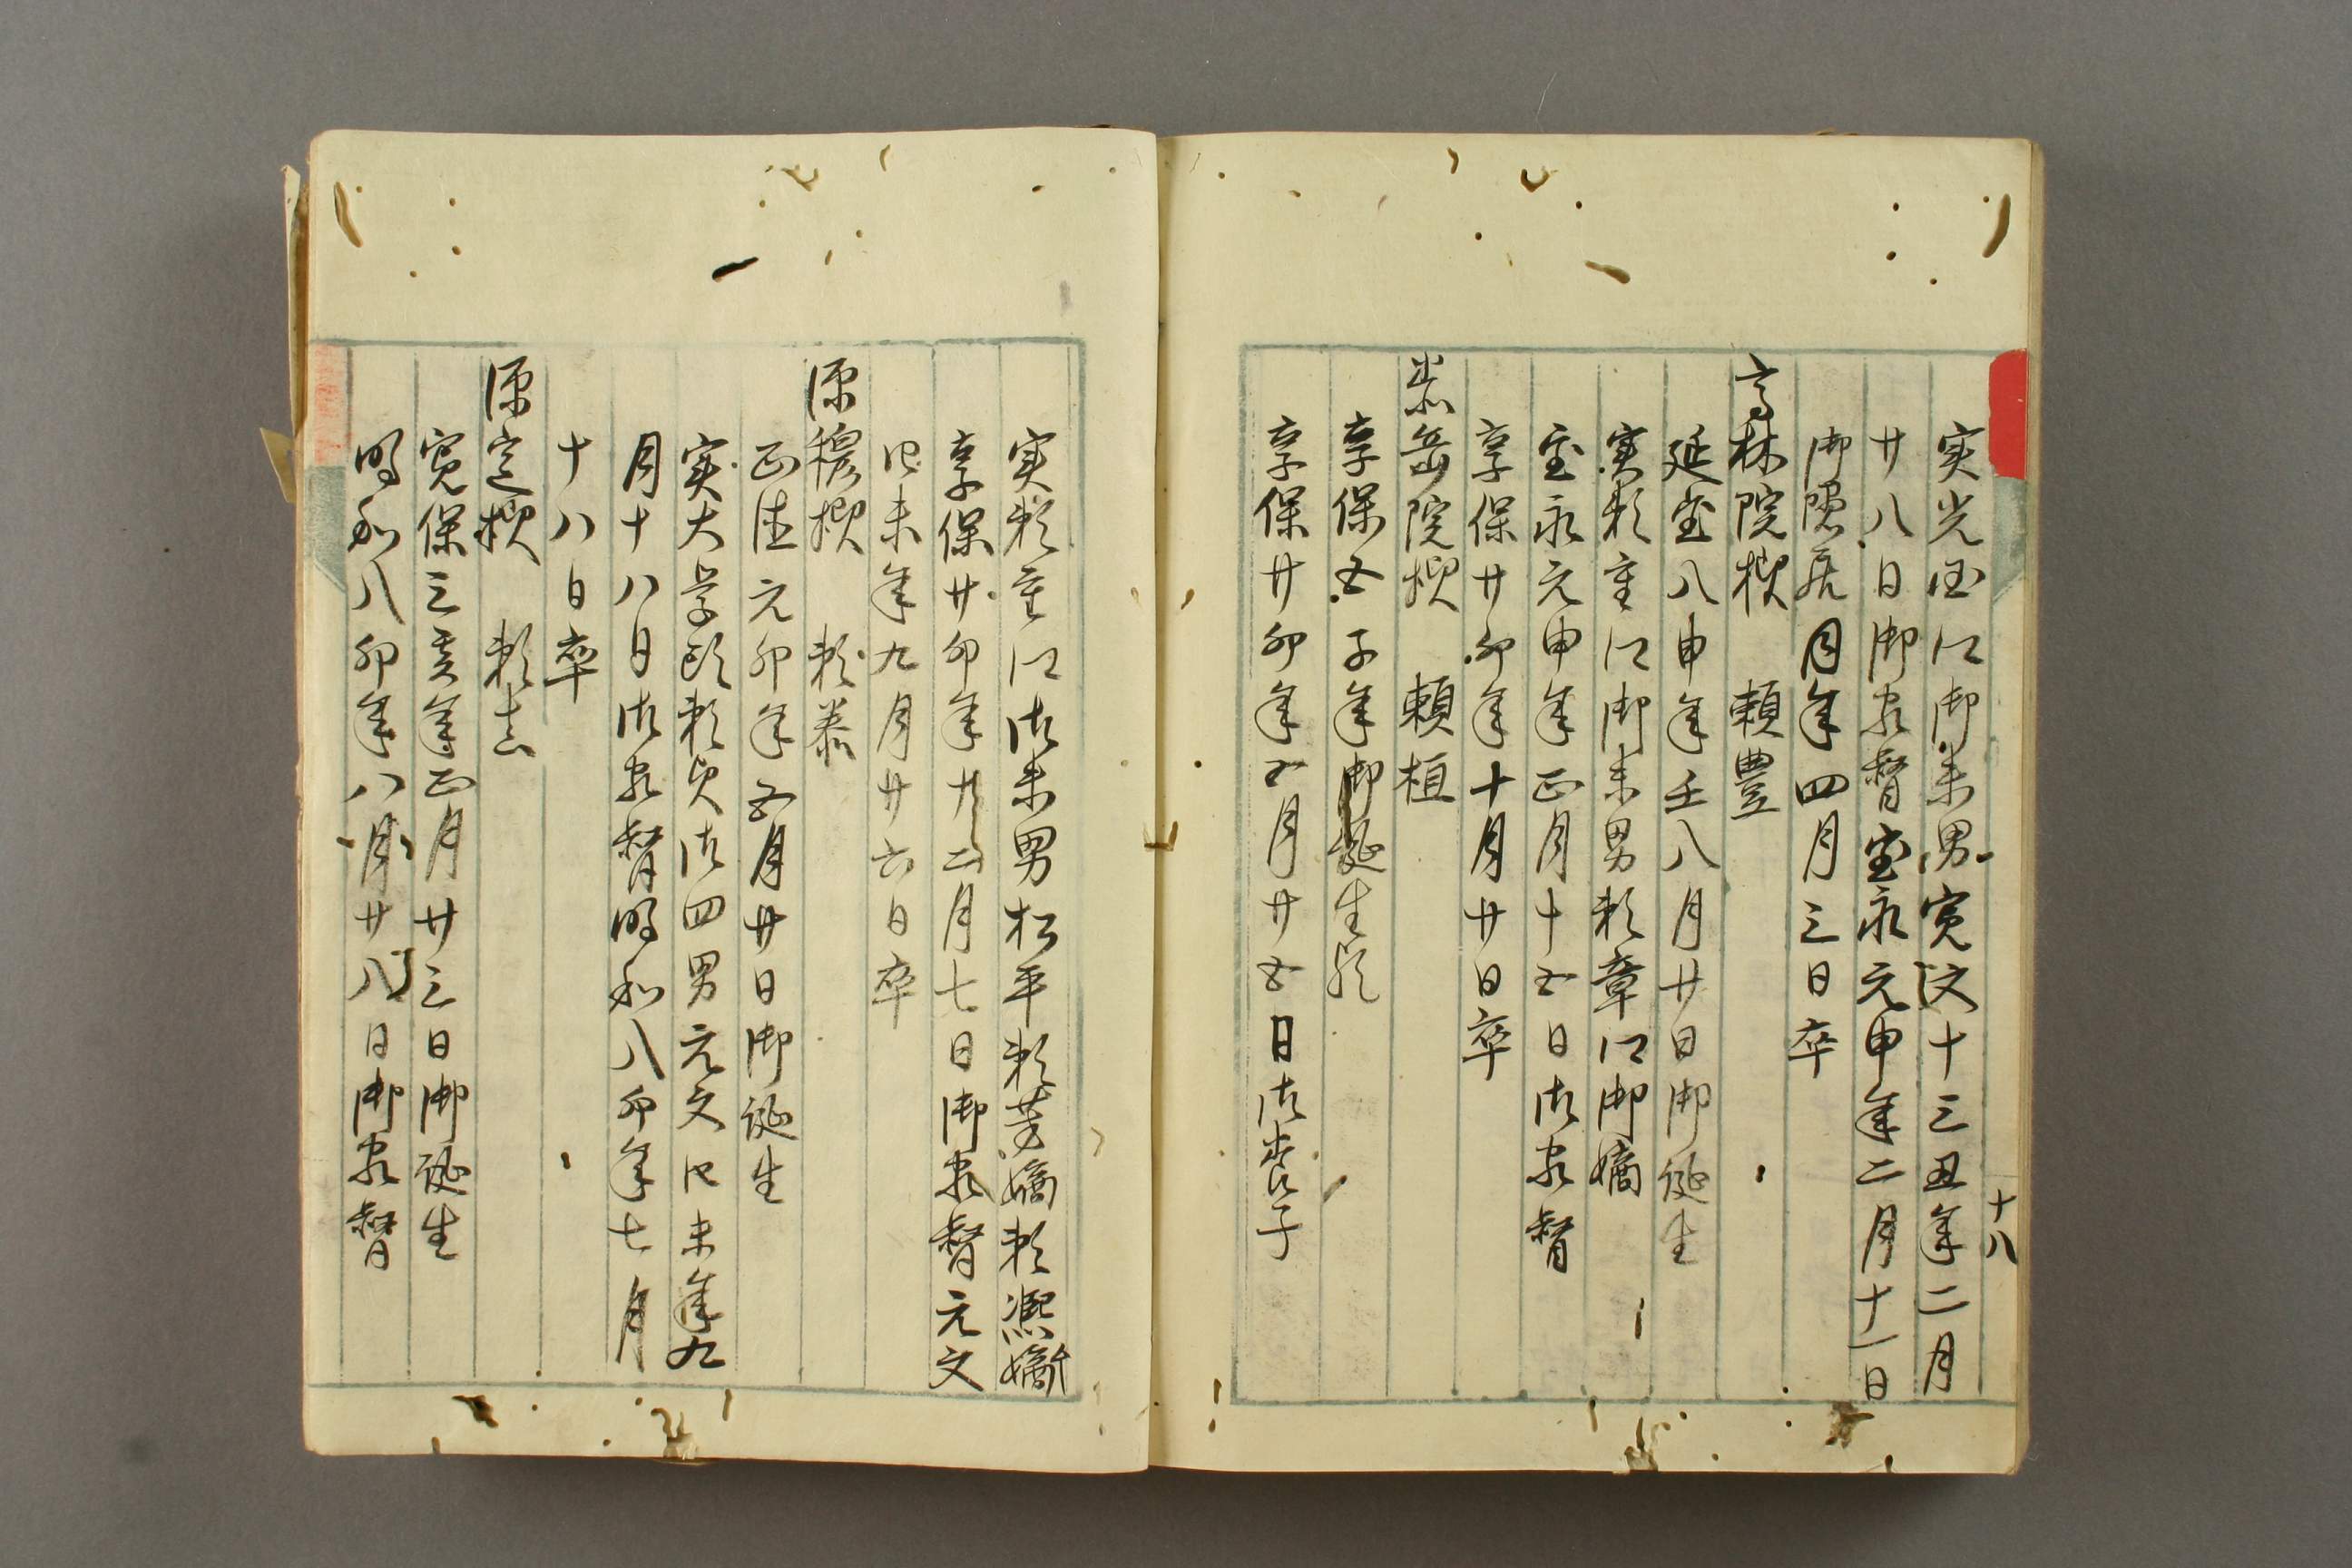 十八
実光圀公御末男寛文十三丑年二月
廿八日御家督宝永元申年二月十一日
御隠居同年四月三日卒
高林院様　頼豊
延宝八申年壬八月廿日御誕生
実頼重公御末男頼章公御嫡
宝永元申年正月十五日御家督
享保廿卯年十月廿日卒
岳院様　頼植
享保五子年御誕生
享保廿卯年五月廿五日御養子
実頼重公御末男松平頼芳嫡頼凞嫡
享保廿卯年十二月七日御家督元文
四未年九月廿六日卒
源穆様　頼恭
正徳元卯年五月廿日御誕生
実大学頭頼貞御四男元文四未年九
月十八日御家督明和八卯年七月
十八日卒
源定様　頼真
寛保三亥年正月廿三日御誕生
明和八卯年八月廿八日御家督